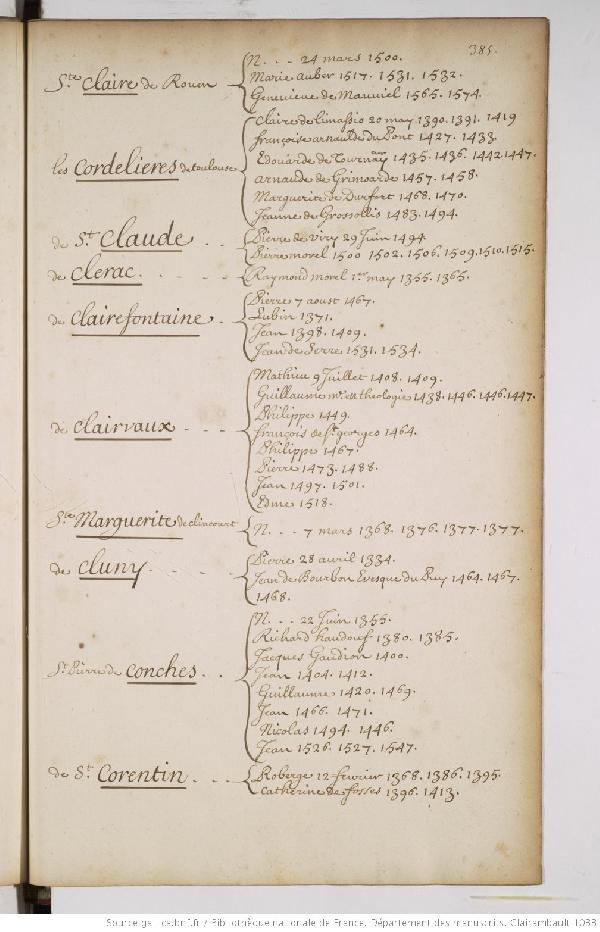 385.
Ste Claire de Rouen
N. . . . 24 mars 1500.
Marie auber 1517. 1531. 1532.
Genevieve de Manuiel 1565. 1574.
les Cordelieres de toulouse
Claire de Linassio 20 may 1390. 1391. 1419
françoise arnaulde du Pont 1427. 1433.
Edouarde de Tournay 1435. 1436. 1442. 1447.
arnaude de Grimoarde 1457. 1458.
Marguerite de Durfort 1468. 1470.
Jeanne de Grossollis 1483. 1494.
de St Claude . .
Pierre de viry 29 Juin 1494.
Pierre morel 1500 1502. 1506. 1509. 1510. 1515.
de Clerac. . . . .
Raymond morel 1er may 1355. 1365.
de Clairefontaine .
Pierre 7 aoust 1467.
Lubin 1371.
Jean 1398. 1409.
Jean de Serre 1531. 1534.
de Clairvaux . . .
Mathieu 9 Juillet 1408. 1409.
Guillaume me en theologie 1438. 1446. 1446. 1447.
Philippe 1449.
françois de St georges 1464.
Philippe 1467.
Pierre 1473. 1488.
Jean 1497. 1501.
Edme 1518.
Ste Marguerite de clincourt
N. . . . 7 mars 1368. 1376. 1377. 1377.
de Cluny . . . .
Pierre 28 avril 1334.
Jean de Bourbon Evesque du Puy 1464. 1467.
1468.
St Pierre de Conches . .
N. . . . 22 Juin 1355.
Richard 1380. 1385.
Jacques Gaudion 1400.
Jean 1404. 1412.
Guillaume 1420. 1469.
Jean 1466. 1471.
Nicolas 1494. 1446.
Jean 1526. 1527. 1547.
de St Corentin . . .
Roberge 12 fevrier 1368. 1386. 1395.
Catherine de fosses 1396. 1413.
Source gallica.bnf.fr / Bibliothèque nationale de France. Département des manuscrits. Clairambault 1033